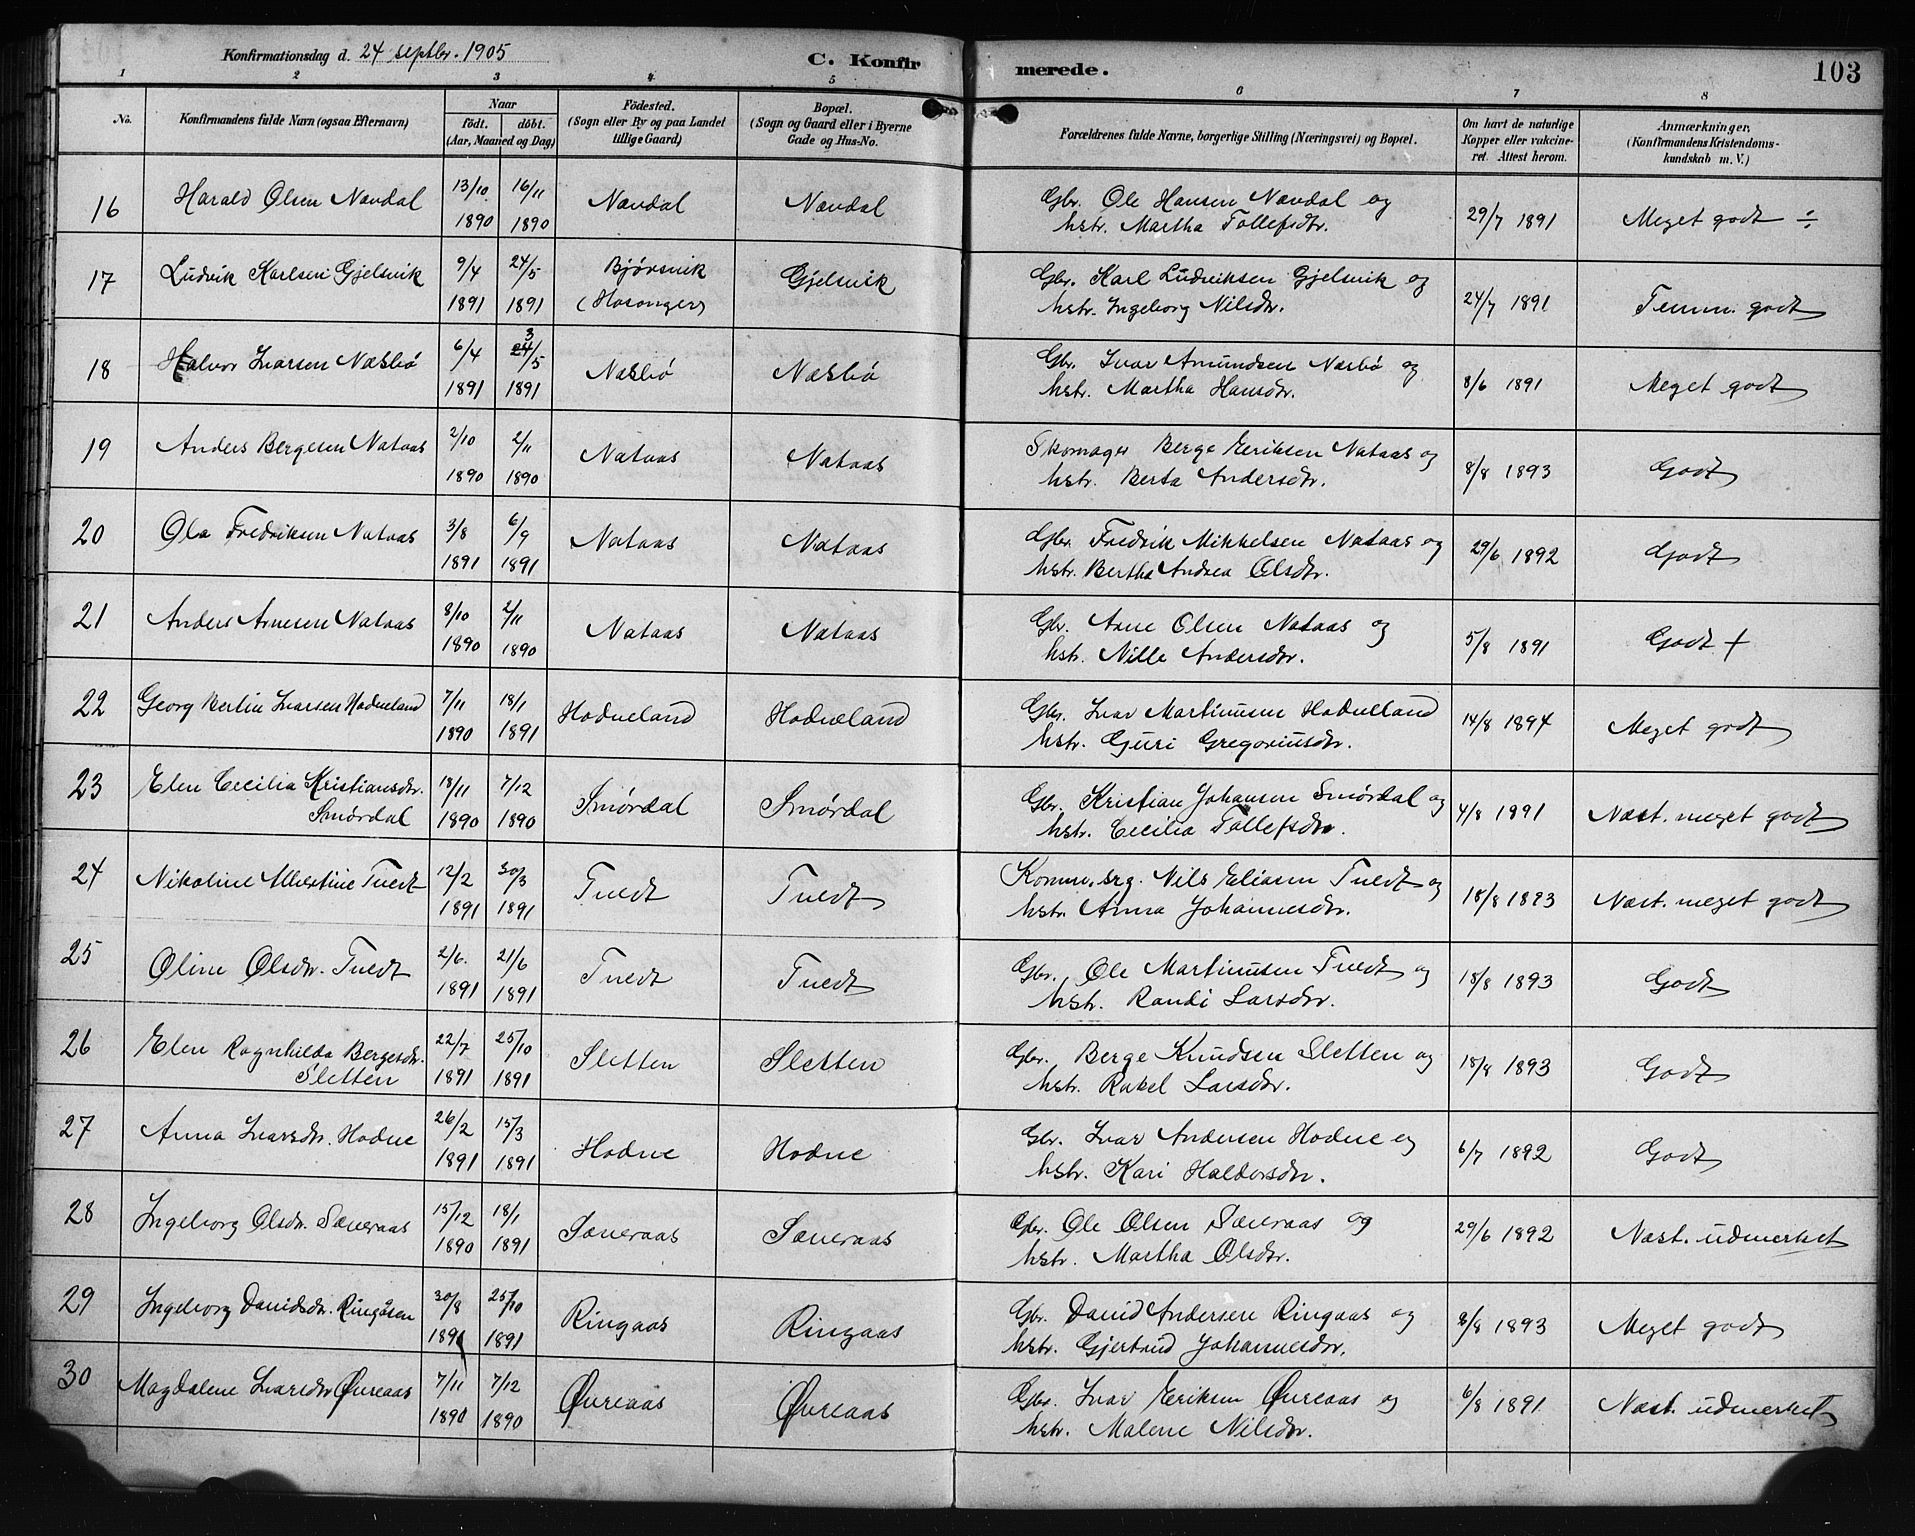 Konfirmationsdag d. 24 septbr. 1905
C. Konfirmerede.
103
1 2 3 4 5 6 7 8
No.
Konfirmandens fulde Navn (ogsaa Efternavn)
Naar
født. døbt.
(Aar, Maaned og Dag)
Fødested.
(Sogn eller By og paa Landet
tillige Gaard)
Bopæl.
(Sogn og Gaard eller i Byerne
Gade og Hus-No.
Forældrenes fulde Navne, borgerlige Stilling (Næringsvei) og Bopæl.
Om havt de naturlige
Kopper eller vakcine-
ret. Attest herom.
Anmærkninger.
(Konfirmandens Kristendoms-
kundskab m. V.)
16 Harald Olsen Nævdal 13/10 1890 16/11 1890 Nævdal Nævdal Gbr. Ole Hansen Nævdal og
hstr. Martha Tollefsdtr. 29/7 1891 Meget godt ÷
17 Ludvik Karlsen Gjelsvik 9/4 1891 24/5 1891 Bjørsvik
(Hosanger) Gjelsvik Gbr. Karl Ludviksen Gjelsvik og
hstr. Ingeborg Nilsdtr. 24/7 1891 Temm. godt
18 Halvor Ivarsen Næsbø 6/4 1891 3/5 1891 Næsbø Næsbø Gbr. Ivar Amundsen Næsbø og
hstr. Martha Hansdtr. 8/6 1891 Meget godt
19 Anders Bergesen Nataas 2/10 1890 2/11 1890 Nataas Nataas Skomager Berge Eeriksen Nataas og
hstr. Berta Andersdtr. 8/8 1893 Godt
20 Ola Fredriksen Nataas 3/8 1891 6/9 1891 Nataas Nataas Gbr. Fredrik Mikkelsen Nataas og
hstr. Bertha Andrea Olsdtr. 29/6 1892 Godt
21 Anders Arnesen Nataas 8/10 1890 2/11 1890 Nataas Nataas Gbr. Arne Olsen Nataas og
hstr. Nille Andersdtr. 5/8 1891 Godt +
22 Georg Bertin Ivarsen Hodneland 7/11 1890 18/1 1891 Hodneland Hodneland Gbr. Ivar Martinusen Hodneland
hstr. Guri Gregoriusdtr. 14/8 1894 Meget godt
23 Elen Cecilia Kristiansdtr.
Smørdal 18/11 1890 7/12 1890 Smørdal Smørdal Gbr. Kristian Johansen Smørdal og
hstr. Cecilia Tollefsdtr. 4/8 1891 Næst. meget godt
24 Nikoline Albertine Tvedt 12/2 1891 30/3 1891 Tvedt Tvedt Nils Eliasen Tvedt og
hstr. Anna Johannesdtr. 18/8 1893 Næst. meget godt
25 Oline Olsdtr. Tvedt 2/6. 1891 21/6 1891 Tvedt Tvedt Gbr. Ole Martinusen Tvedt og
hstr. Randi Larsdtr. 18/8 1893 Godt
26 Elen Ragnhilda Bergesdtr.
Sletten 22/7 1891 25/10 1891 Sletten Sletten Gbr. Berge Knudsen Sletten og
hstr. Rakel Larsdtr. 18/8 1893 Godt
27 Anna Ivarsdtr. Hodne 26/2 1891 15/3 1891 Hodne Hodne Gbr. Ivar Andersen Hodne og
hstr. Kari Haldorsdtr. 6/7 1892 Godt
28 Ingeborg Olsdtr. Sæveraas 15/12 1890 18/1 1891 Sæveraas Sæveraas Gbr. Ole Olsen Sæveraas og
hstr. Martha Olsdtr. 29/6 1892 Næst. udmerket
29 Ingeborg Davidsdtr. Ringåsen 30/8 1891 25/10 1891 Ringaas Ringaas Gbr. David Andersen Ringaas og
hstr. Gjertrud Johannesdtr. 8/8 1893 Meget godt
30 Magdalene Ivarsdtr Øvreaas 7/11 1890 7/12 1890 Øvreaas Øvreaas Gbr. Ivar Eriksen Øvreaas og
hstr. Malene Nilsdtr. 6/8 1891. Næst. udmerket